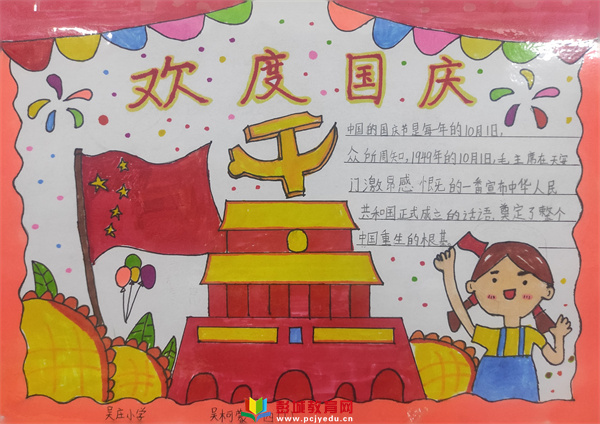 欢度国庆
中国的国庆节是每一年的10月1日,
众所周知,1949年的10月1日,毛主席在天安
门激昂感慨的一番宣布中华人民
共和国正式成立的话语,奠定了整个
中国重生的根基。
吴庄小学 吴柯
彭城教育网
www.pcjyedu.cn